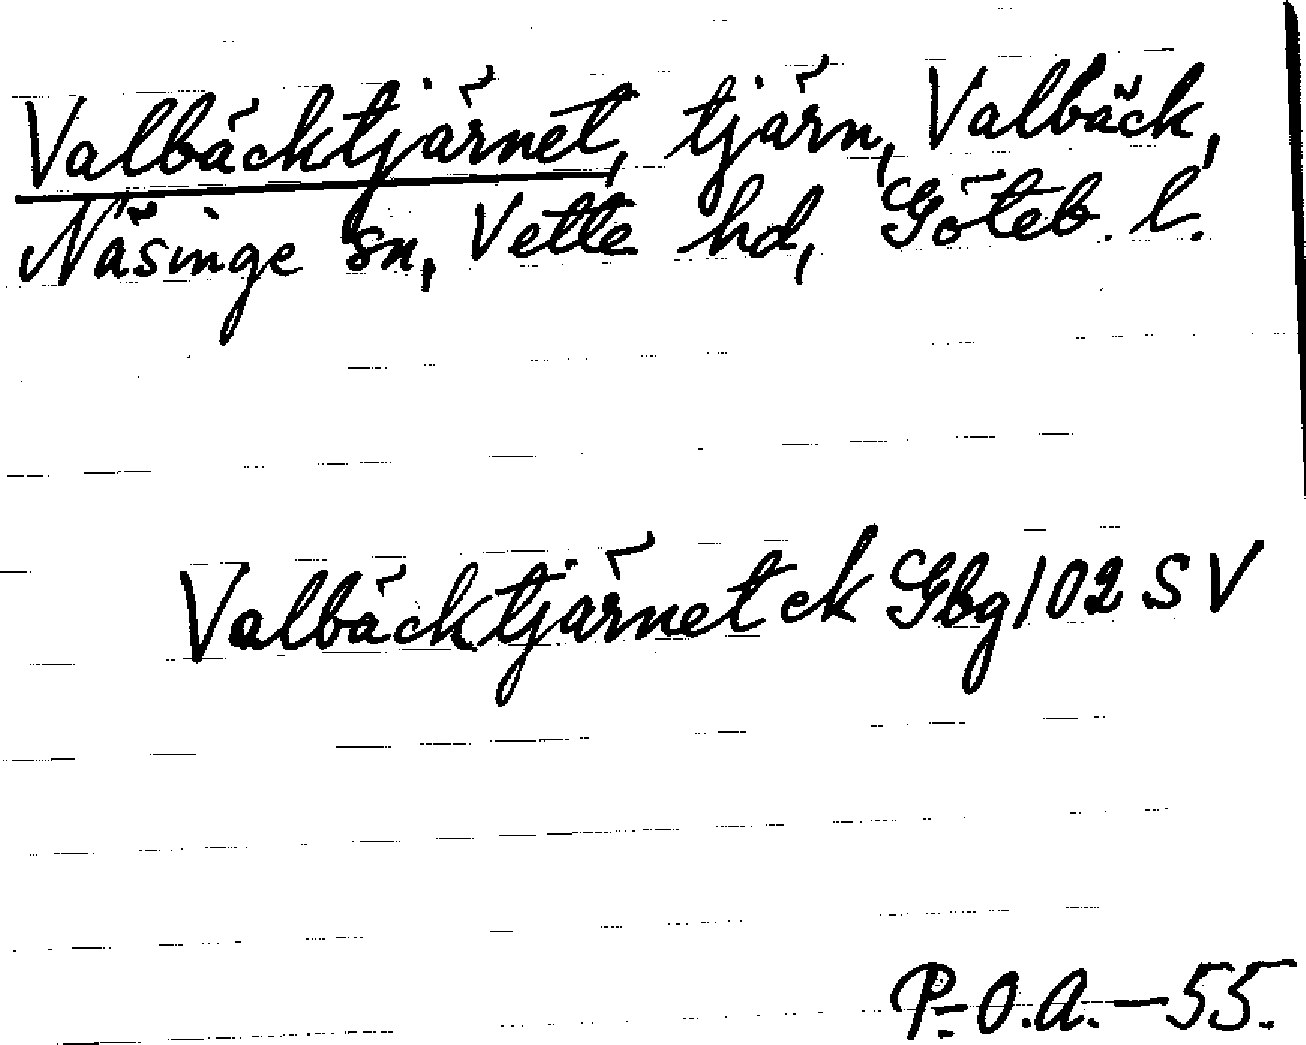 Valbäcktjärnet, tjärn, Valbäck,
Näsinge sn, Vette hd, Göteb. l.
Valbäcktjärnet ek Gbg 102 SV
P.-O.A.-55.